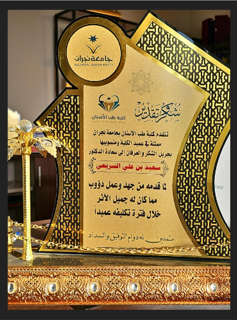 جامعة نجران
NAJRAN UNIVERSITY
شكر وتقدير
كلية طب الأسنان
تتقدم كلية طب الأسنان بجامعة نجران
ممثلة في عميد الكلية ومنسوبيها
بجزيل الشكر والعرفان إلى سعادة الدكتور
سعيد بن علي السريعي
لما قدمه من جهد وعمل دؤوب
مما كان له جميل الأثر
خلال فترة تكليفه عميداً
متمنين له دوام التوفيق والسداد